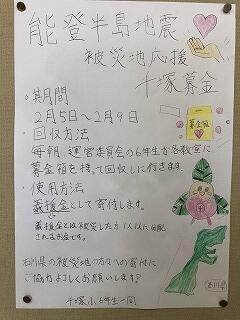 能登半島地震
被災地応援
千塚募金
・期間
2月5日〜2月9日
・回収方法
毎朝、運営委員会の6年生が各教室に
募金箱を持って回収しに行きます。
・使用方法
義援金として寄付します。
義援金とは被災した方1人1人に分配
されるお金です。
石川県の被災地の方々への寄付に
ご協力よろしくお願いします!
千塚小6年生一同
募金箱
石川県